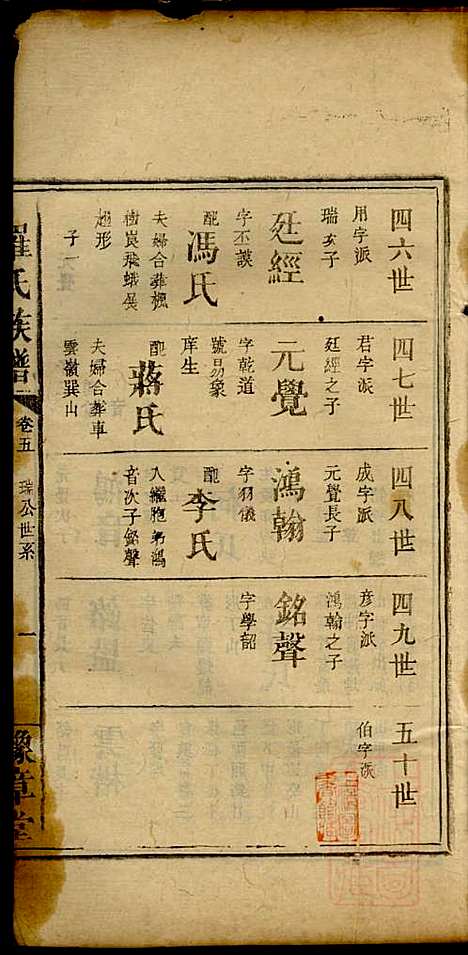 四六世
用字派
瑞亥子
廷經
字不談
配
馮氏
夫婦合葬楓
樹崀飛蛾展
翅形
子一
四七世
君字派
廷經之子
元覺
字乾道
號易象
庠生
配
蔣氏
夫婦合葬車
雲嶺巽山
四八世
成字派
元覺長子
鴻翰
字羽儀
配
李氏
入繼胞弟鴻
音次子銘聲
四九世
彦字派
鴻翰之子
銘聲
字學韶
五十世
伯字派
羅氏族譜
卷五
瑞公世系
一
豫章堂